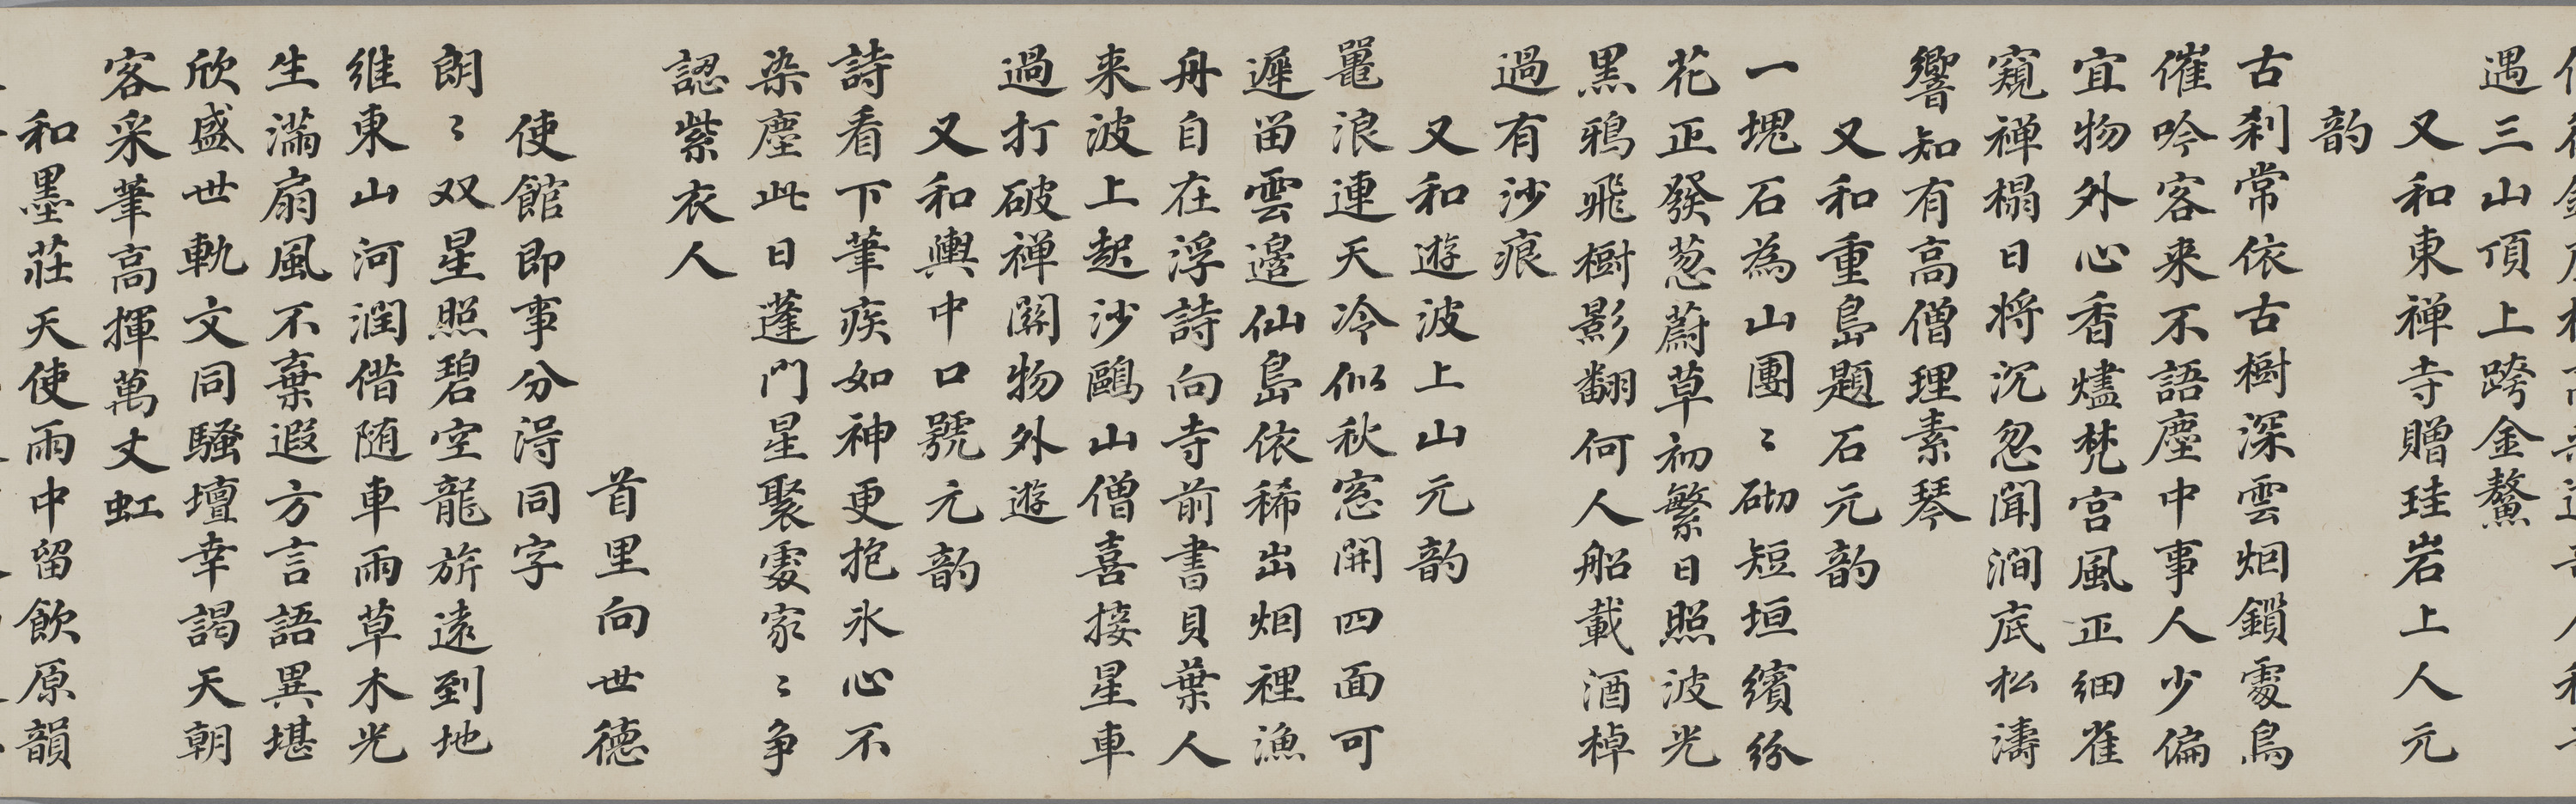 遇三山頂上跨金鰲
又和東禅寺贈珪岩上人元
韵
古刹常依古樹深雲烟鎖䖏鳥
催吟客来不語塵中事人少偏
宜物外心香燼梵宮風正細雀
窺禅榻日将沉忽聞澗底松濤
響知有高僧理素琴
又和重島題石元韵
一塊石為山團〻砌短垣繽紛
花正發葱蔚草初繁日照波光
黒鴉飛樹影翻何人船載酒棹
過有沙痕
又和遊波上山元韵
鼍浪連天冷似秋窓開四面可
遲留雲邉仙島依稀出烟裡漁
舟自在浮詩向寺前書貝葉人
来波上起沙鷗山僧喜接星車
過打破禅關物外遊
又和輿中口號元韵
詩看下筆疾如神更抱氷心不
染塵此日蓬門星聚䖏家〻争
認紫衣人
首里向世德
使館即事分淂同字
朗〻双星照碧空龍旂遠到地
維東山河潤借随車雨草木光
生滿扇風不棄遐方言語異堪
欣盛世軌文同騷壇幸謁天朝
客采筆高揮萬丈虹
和墨莊天使雨中留飲原韻